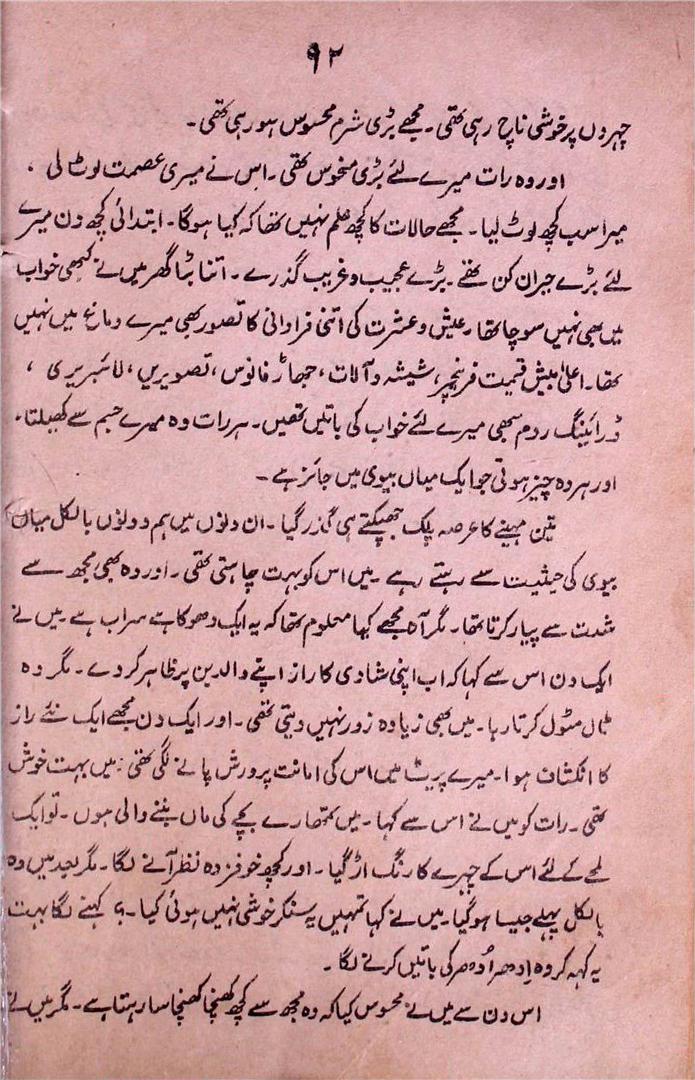 ۹۲
چہروں پر خوشی ناچ رہی تھی۔ مجھے بڑی شرم محسوس ہو رہی تھی۔
اور وہ رات میرے لئے بڑی منحوس تھی۔ اس نے میری عصمت لوٹ لی ،
میرا سب کچھ لوٹ لیا۔ مجھے حالات کا کچھ علم نہیں تھا کہ کیا ہوگا۔ ابتدائی کچھ دن میرے
لئے بڑے حیران کن تھے۔ بڑے عجیب و غریب گذرے۔ اتنا بڑا گھر میں نے کبھی خواب
میں بھی نہیں سوچا تھا۔ عیش و عشرت کی اتنی فراوانی کا تصور بھی میرے دماغ میں نہیں
تھا۔ اعلیٰ بیش قیمت فرنیچر، شیشہ و آلات، جھاڑ فانوس، تصویریں، لائبریری ،
ڈرائینگ روم سبھی میرے لئے خواب کی باتیں تھیں۔ ہر رات وہ میرے جسم سے کھیلتا۔
اور ہر وہ چیز ہوتی جو ایک میاں بیوی میں جائز ہے۔
تین مہینے کا عرصہ پلک جھپکتے ہی گذر گیا۔ ان دنوں میں ہم دونوں بالکل میاں
بیوی کی حیثیت سے رہتے رہے۔ میں اس کو بہت چاہتی تھی۔ اور وہ بھی مجھ سے
شدت سے پیار کرتا تھا۔ مگر آہ مجھے کیا معلوم تھا کہ یہ ایک دھوکا ہے سراب ہے۔ میں نے
ایک دن اس سے کہا کہ اب اپنی شادی کا راز اپنے والدین پر ظاہر کر دے۔ مگر وہ
ٹال مٹول کرتا رہا۔ میں بھی زیادہ زور نہیں دیتی تھی۔ اور ایک دن مجھے ایک نئے راز
کا انکشاف ہوا۔ میرے پیٹ میں اس کی امانت پرورش پانے لگی تھی۔ میں بہت خوش
تھی۔ رات کو میں نے اس سے کہا۔ میں تمھارے بچے کی ماں بننے والی ہوں۔ تو ایک
لمحے کے لئے اس کے چہرے کا رنگ اڑ گیا۔ اور کچھ خوفزدہ نظر آنے لگا۔ مگر بعد میں وہ
بالکل پہلے جیسا ہو گیا۔ میں نے کہا تمہیں یہ سنکر خوشی نہیں ہوئی کیا۔؟ کہنے لگا بہت
یہ کہہ کر وہ اِدھر اُدھر کی باتیں کرنے لگا۔
اس دن سے میں نے محسوس کیا کہ وہ مجھ سے کچھ کھنچا کھنچا سا رہتا ہے۔ مگر میں نے